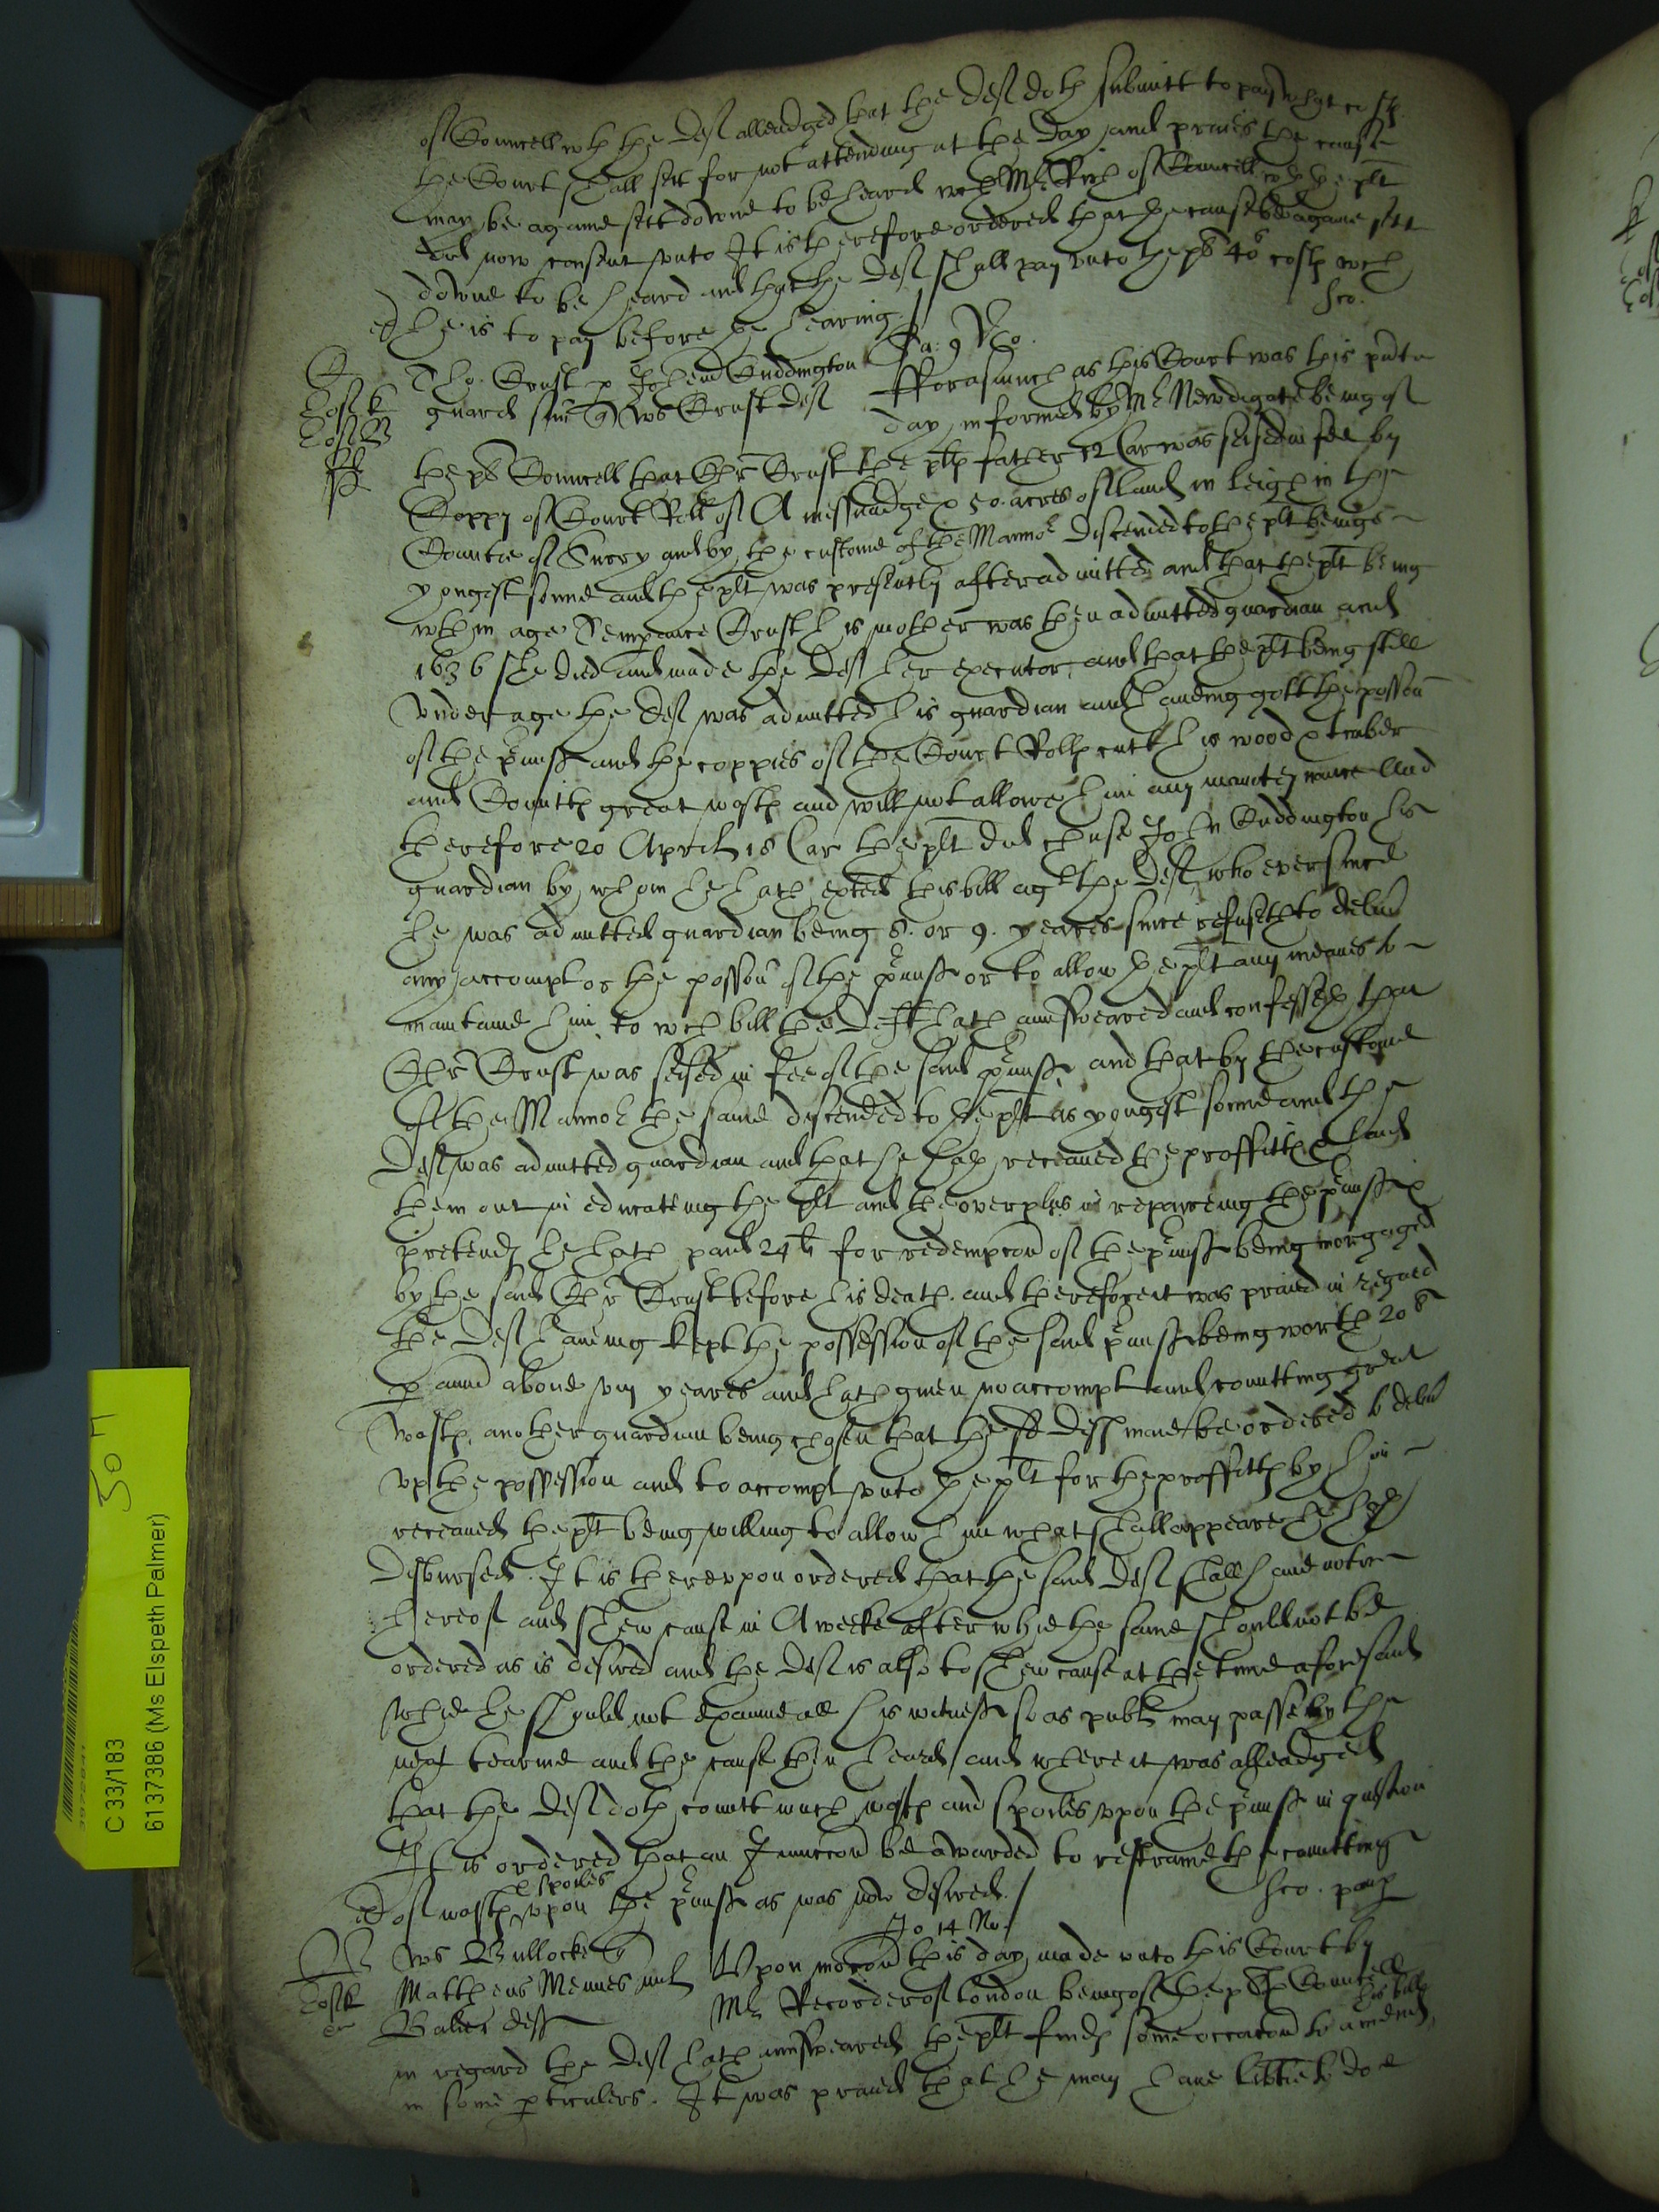 of Councell wth the Deft alleadged that the Deft doth submitt to pay what costs
the Court shall sett for not attending at the day and praies the cause
may be againe sett downe to be heard wch Mr Rich of Councell wth the plt
did now consent unto It is therefore ordered that the cause be againe sett
downe to be heard and that the Deft shall pay unto the plt 40s costs wch
he is to pay before the hearing
Sa: 9 No.
Tho. Crust p John Cuddington
guard suu q Ws Crust Deft
Forasmuch as this Court was this pnte
day informed by Mr Newdigate being of
the plts Councell that Chr Crust the plts father 12 Car was seised in fee by
Coppy of Court Roll of A messuadge & 50 acres of land in Leigh in the
Countie of Surry and by the custome of the Mannor discended to the plt beinge
yongest sonne and the plt was presently after admitted and that the plt being
wthin age Temperance Crust his mother was then admitted guardian and
1636 she died and made the Deft her executor, and that the plt being still
under age the Deft was admitted his guardian and haveing gott the possion
of the pmiss and the coppies of the Court Rolls cutt his wood & timber
and Comitts great wasts and will not allowe him any mainteynance And
therefore 20 April 18 Car the plt did chuse John Cuddington his
guardian by whom he hath exted this bill agt the Deft who ever since
he was admitted guardian being 8. or 9. yeares since refuseth to deliv
any accompt or the possion of the pmiss or to allow the plt any meanes to
maintaine him to wch bill the Deft hath answeared and confesseth that
Chr Crust was seised in fee of the said pmiss and that by the custome
of the Mannor the same discended to the plt as yongest sonne and the
Deft was admitted guardian and that he hath receaved the proffitts & laid
them out in educateing the plt and the overplus in repaireing the pmiss &
pretends he hath paid 24li for redempcon of the pmiss being morgaged
by the said Chr Crust before his death. and therefore it was praied in regard
the Deft haveing kept the possession of the said pmiss being worth 20li
p annu above viij yeares and hath given no accompt and comitting great
wasts, another guardian being chosen that the sd Deft maie be ordered to deliv
up the possession and to accompt unto the plt for the proffitts by him
receaved the plt being willing to allow him what shall appeare he hath
disbursed. It is thereupon ordered that the said Deft shall have notice
hereof and shew cause in A weeke after whie the same should not be
ordered as is desired and the Deft is also to shew cause at the time aforesaid
whie he should not examine all his witness so as publ may passe by the
next tearme and the cause then heard and where it was alleadged
that the Deft doth comitt much wasts and spoiles upon the pmiss in question
It is ordered that an Iniunccon be awarded to restraine the comitting
of wasts & spoiles upon the pmiss as was now desired.
Jo 14 No.
Ws Bullocke q
Mattheus Mennes and
Baker defts
Upon mocon this day made unto this Court by
Mr Recorder of London being of the plts Councell
in regard the Deft hath answeared the plt finds some occacon to amend his bill
in some pticulers. It was praied that he may have libtie to doe
C 33/183
6137386 (Ms Elspeth Palmer)